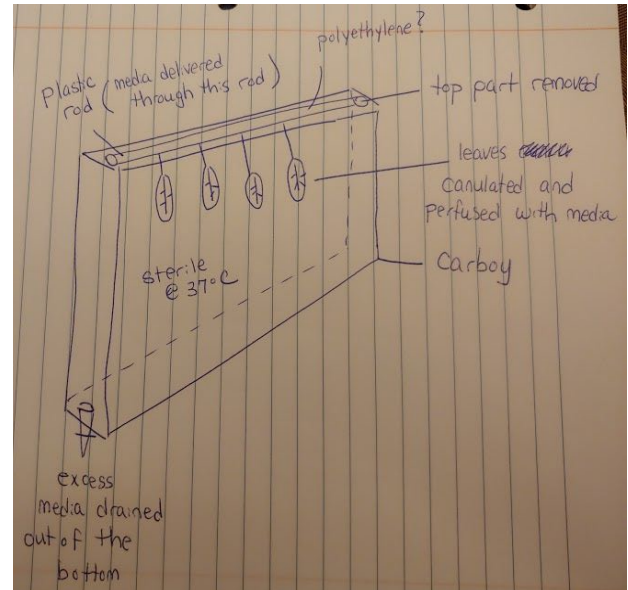 polyethylene?
plastic (media delivered
rod through this rod)
top part removed
leaves
canulated and
perfused with media
Carboy
sterile
@ 37°C
excess
media drained
out of the
bottom